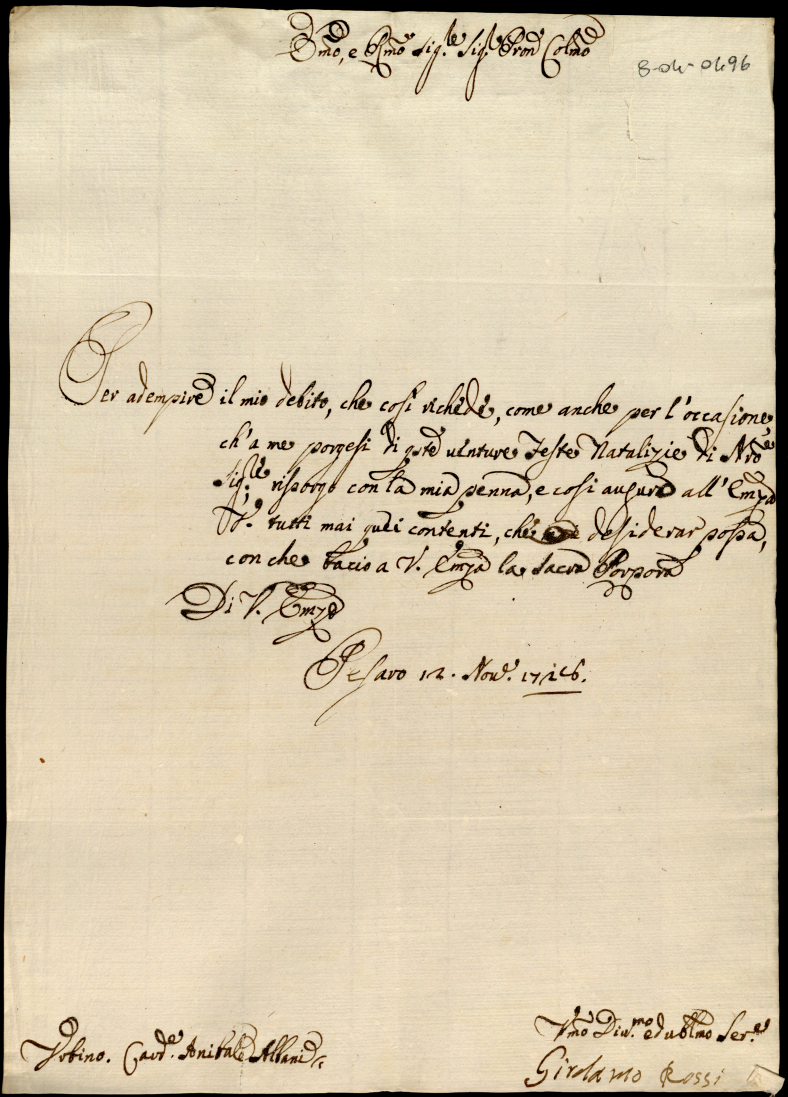 Emo, e Rmo Sig.re Sig.re Pron Colmo
8-04-0496
Per adempire il mio debito, che così richede, come anche per l'occasione
ch'a me porgesi di qste venture Feste Natalizie di Nro
Sig.re risporgo con la mia penna, e così auguro all' Emza
V. tutti mai quei contenti, che desiderar possa,
con che bacio a V. Emza la Sacra Porpora
Di V. Emza
Pesaro 12. Nov.e 1726.
Urbino. Card.e Anibale Albani
Umo Div.mo ed ubblmo Ser.e
Girolamo Rossi